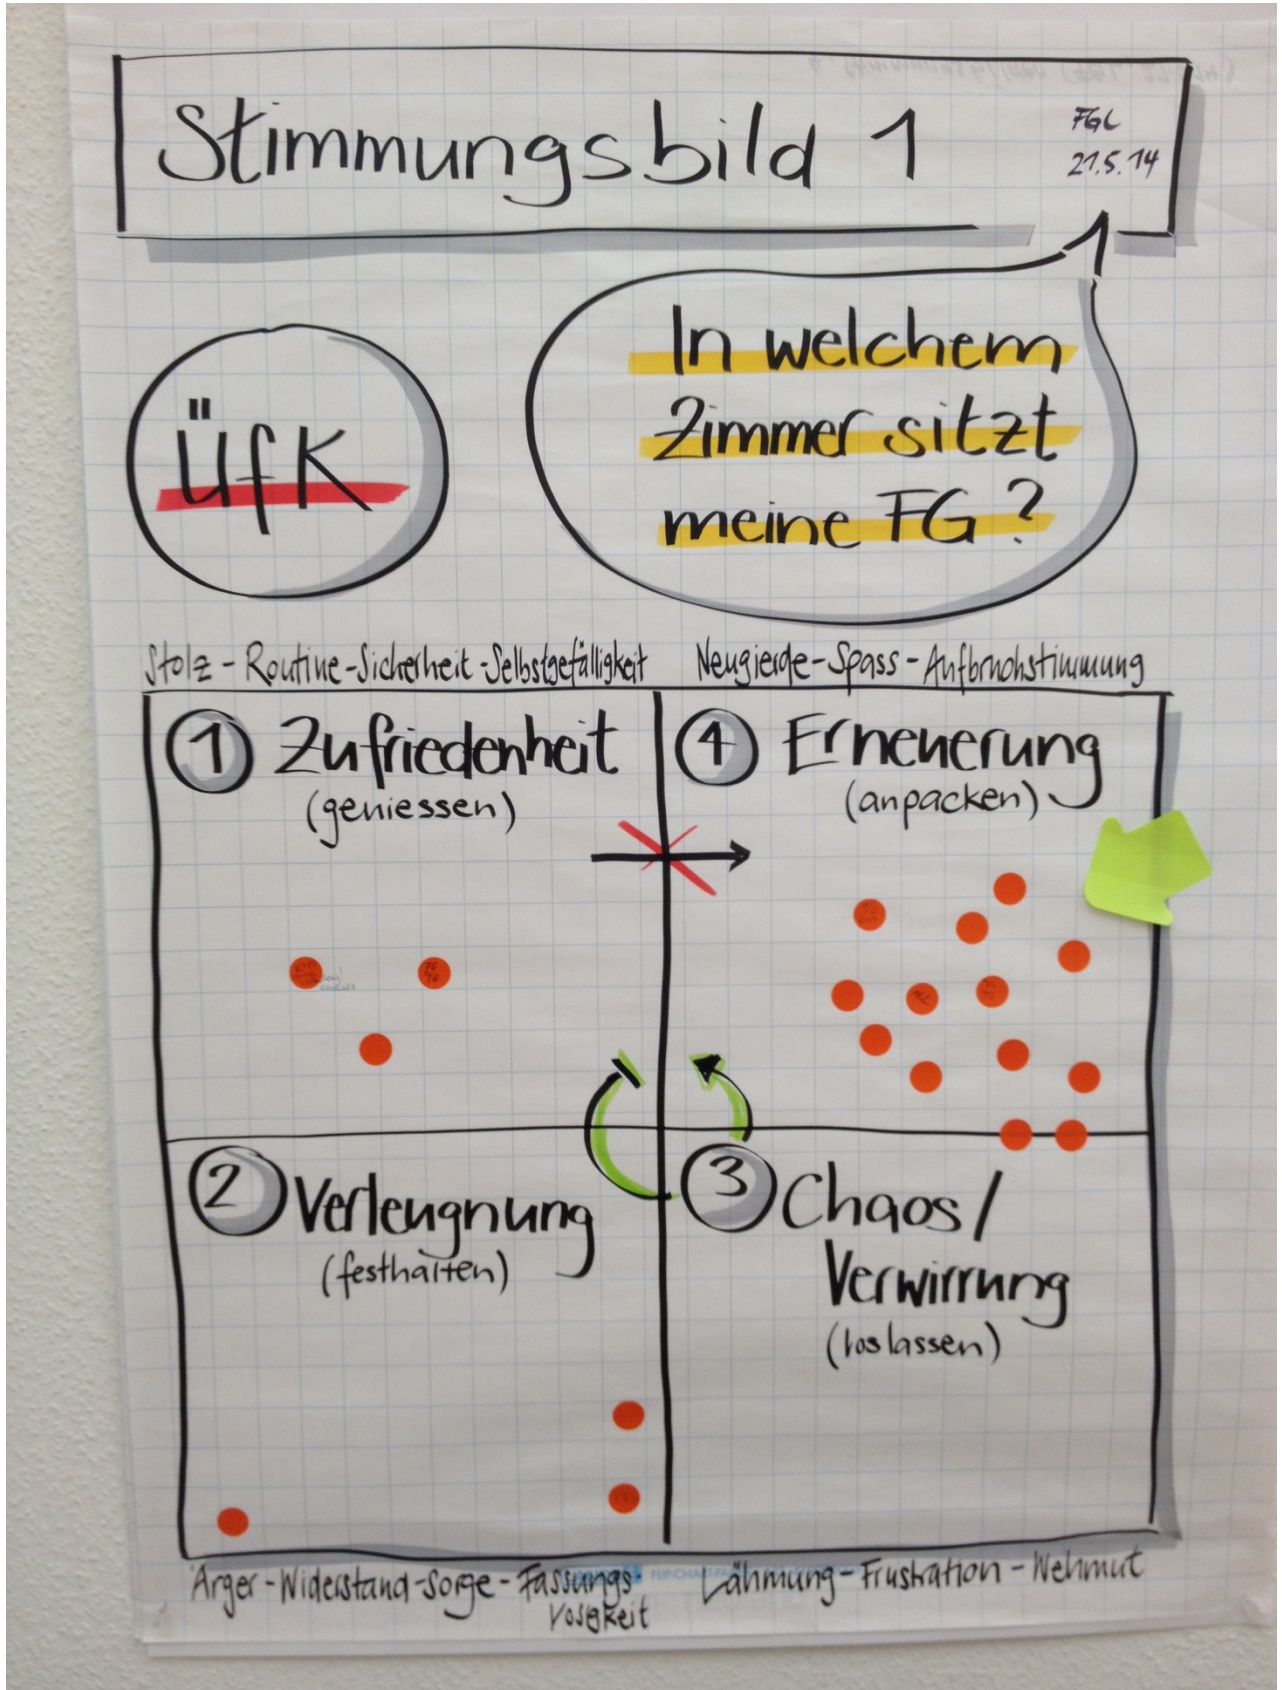 Stimmungsbild 1
FGL
21.5.14
ÜfK
In welchem
Zimmer sitzt
meine FG?
Stolz - Routine - Sicherheit - Selbstgefälligkeit
Neugierde - Spass - Aufbruchstimmung
1 Zufriedenheit
(geniessen)
4 Erneuerung
(anpacken)
2 Verleugnung
(festhalten)
3 Chaos/
Verwirrung
(loslassen)
Ärger - Widerstand - Sorge - Fassungs
losigkeit
Lähmung - Frustration - Wehmut